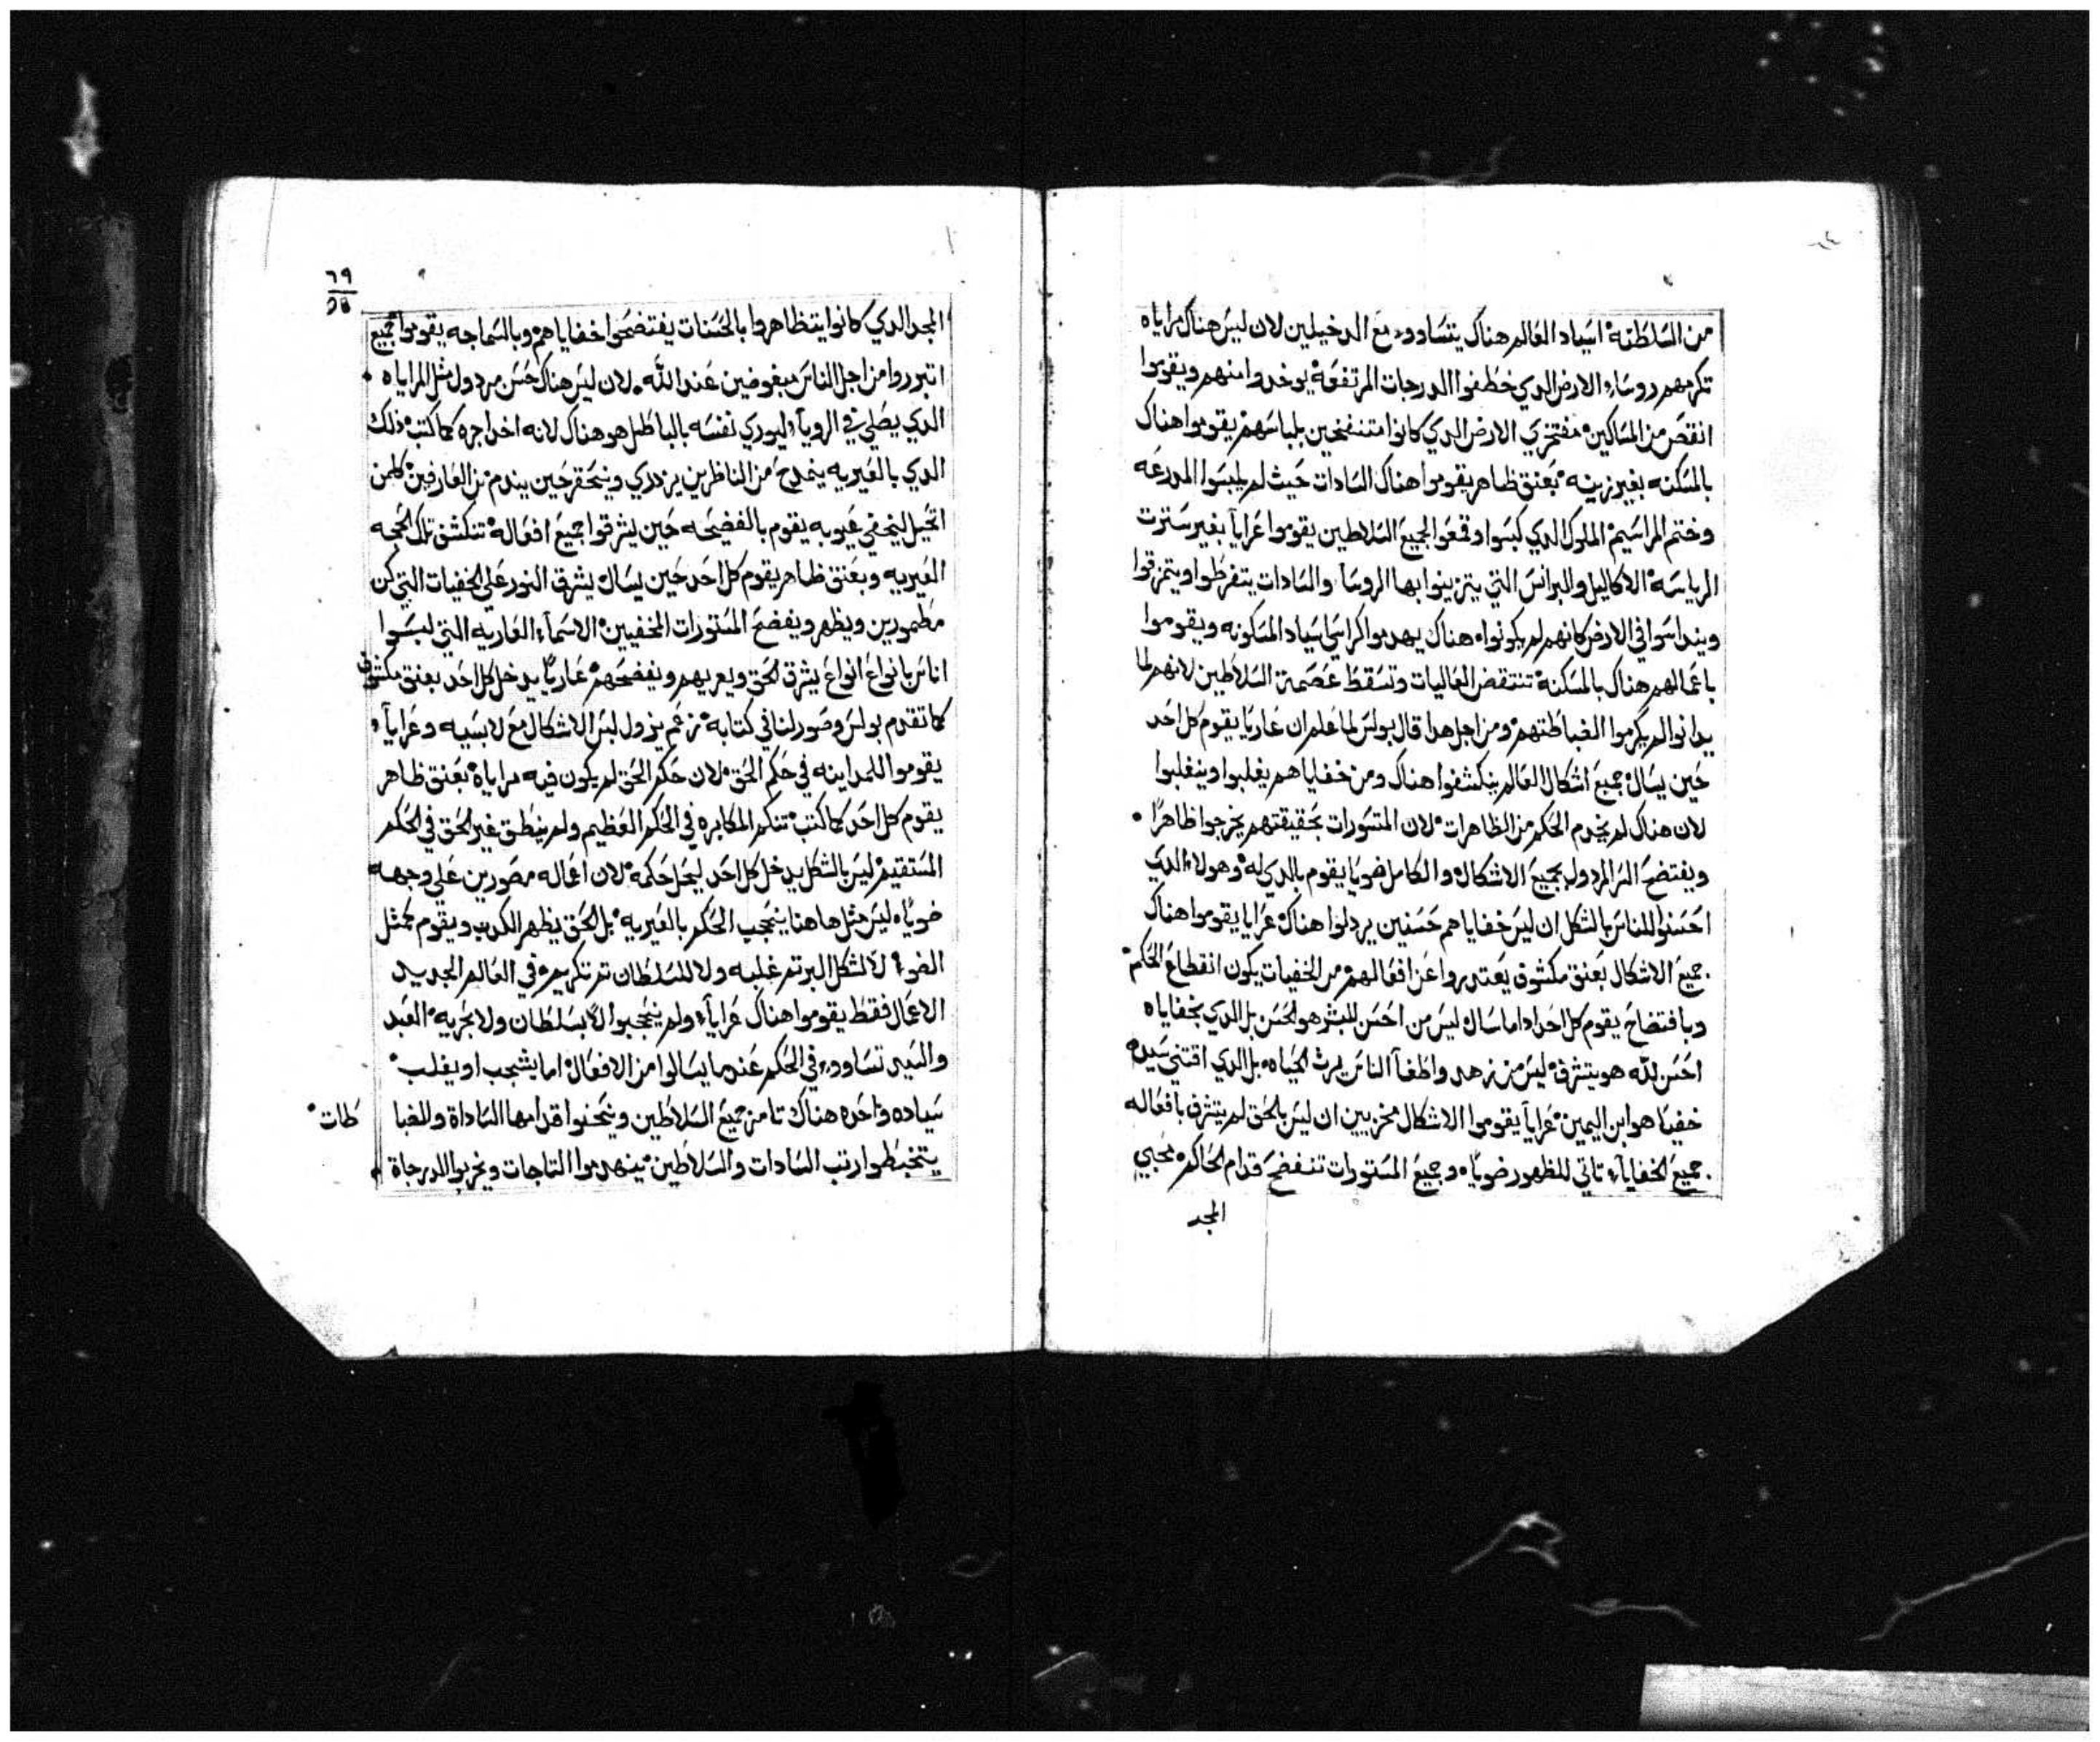 من السلطنة اسياد العالم هناك يتساووا مع الدخيلين لان ليس هناك مراياه
تكرمهم روساء الارض الدي خطفوا الدرجات المرتفعة يوخدوا منهم ويقوموا
انقص من المساكين مفتخري الارض الدي كانوا متنفخين بلباسهم يقوموا هناك
بالمسكنه بغير زينه بعنق ظاهر يقوموا هناك السادات حيث لم يلبسوا المدرعه
وختم المراسيم الملوك الدي كبسوا وقمعوا لجميع السلاطين يقوموا عرايا بغير سترت
الرياسة الاكاليل والبرانس التي يتزينوا بها الروسا والسادات يتفرطوا ويتمزقوا
وينداسوا في الارض كانهم لم يكونوا هناك يهدموا كراسي اسياد المسكونه ويقوموا
باعمالهم هناك بالمسكنة تنتقض العاليات وتسقط عصمة السلاطين لانهم لما
يدانوا لم يكرموا الغباطتهم ومن اجل هدا قال بولس لما علم ان عاريا يقوم كل احد
حين يسال جميع اشكال العالم ينكشفوا هناك ومن خفاياهم يغلبوا وينغلبوا
لان هناك لم يخدم الحكم من الظاهرات لان المتسورات بحقيقتهم يخرجوا ظاهرا
ويفتضح السر المردول بجميع الاشكال والكامل ضويا يقوم بالدي له وهولاء الدين
احسنوا للناس بالشكل ان ليس خفاياهم حسنين يردلوا هناك عرايا يقوموا هناك
جميع الاشكال بعنق مكشوف يعتدروا عن افعالهم من الخفيات يكون انقطاع الحكم
وبافتضاح يقوم كل احد اداما سال ليس من احسن للبشر هو الحسن بل الدي بخفاياه
احسن لله هو يتشرف ليس من زهد واطغا الناس يرث الحياه بل الدي اقتني سيده
خفيا هو ابن اليمين عرايا يقوموا الاشكال مخزيين ان ليس بالحق لم يتشرف بافعاله
جميع الخفايا تاتي للظهور ضويا وجميع المستورات تنفضح قدام الحاكم محبي
المجد
٦٩
المجد الدي كانوا يتظاهروا بالحسنات يفتضحوا خفاياهم وبالسماجه يقوموا جميع
اتبرروا من اجل الناس مبغوضين عند الله لان ليس هناك حسن مردول مثل المراياه
الدي يطلي في الرويا ليوري نفسه بالباطل هو هناك لانه اخد اجره كما كتب ذلك
الدي بالغيريه ينمدح من الناظرين يزدري وينحقر حين يندم من العارفين كلمن
اتحيل ليخفي عيوبه يقوم بالفضيحه حين يشرقوا جميع افعاله تنكشف تلك الحجه
الغيريه وبعنق ظاهر يقوم كل احد حين يسال يشرق النور على الخفيات التي كن
مطمورين ويظهر ويفضح المستورات المخفيين الاسماء العاريه التي لبسوا
اناس بانواع انواع يشرق الحق ويعريهم ويفضحهم عاريا يدخل كل احد بعنق مكشوف
كما تقدم بولس وصور لنا في كتابة زعم يزول لبس الاشكال مع لابسيه وعرايا
يقوموا للمداينه في حكم الحق لان حكم الحق لم يكون فيه مراياة بعنق ظاهر
يقوم كل احد كما كتب تنكم المكابره في الحكم العظيم ولم ينطق غير الحق في الحكم
المستقيم ليس بالشكل يدخل كل احد ليحل حكمه لان اعماله مصورين على وجهه
ضويا ليس مثل هاهنا ينحجب الحكم بالغيريه بل الحق يظهر الكدوب ويقوم كمثل
الضوء لا لشكل البر تم غلبه ولا للسلطان تم تكريم في العالم الجديد
الاعمال فقط يقوموا هناك عرايا ولم ينحجبوا لا بسلطان ولا بحريه العبد
والسيد تساووا في الحكم عندما يسالوا من الافعال اما يشجب او يغلب
سياده واحده هناك تامر جميع السلاطين وينحنوا قدامها الساداة وللغبا
طات
يتخبطوا رتب السادات والسلاطين ينهدموا التاجات ويخربوا الدرجاة